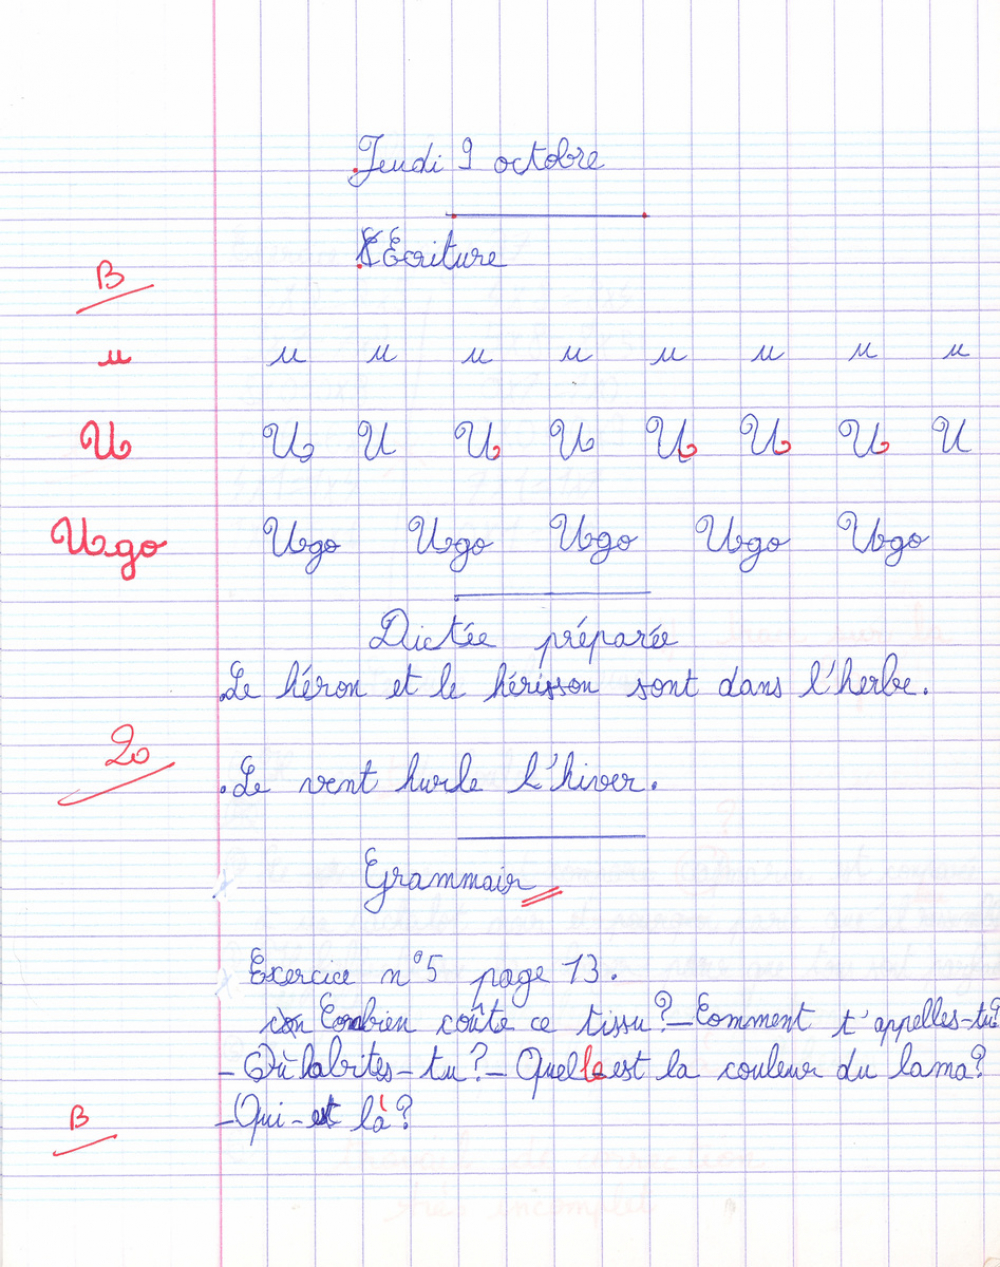 Jeudi 9 octobre
Ecriture
B
u u u u u u u u u
U U U U U U U U U
Ugo Ugo Ugo Ugo Ugo Ugo
Dictée préparée
Le héron et le hérisson sont dans l'herbe.
20
Le vent hurle l'hiver.
Grammair
Exercice n°5 page 13.
Combien coûte ce tissu? - Comment t'appelles-tu?
- Où habites-tu? - Quelle est la couleur du lama?
- Qui - est là?
B